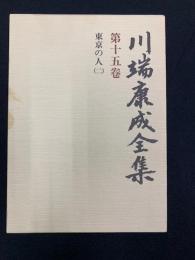 川端康成全集
第十五巻
東京の人(二)